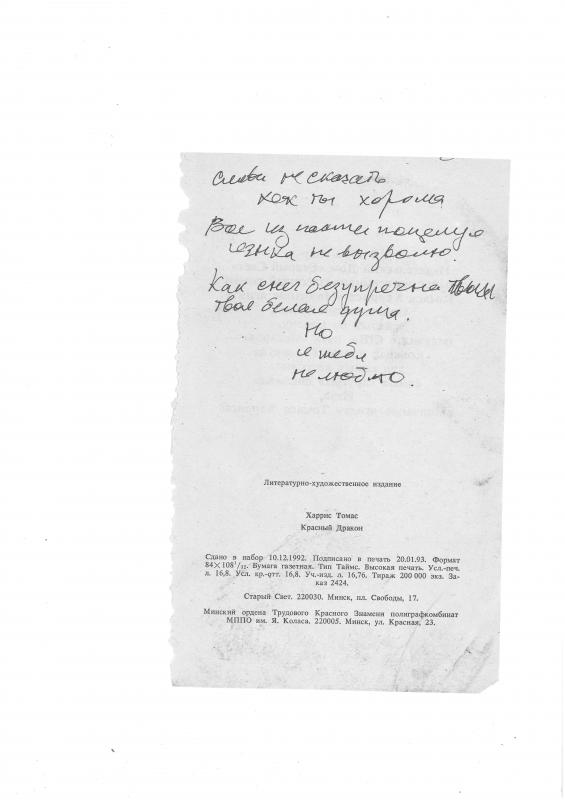 слов не сказать
как ты хороша
Вас из пасти поцелуя
языка не вызволю.
Как снег безупречна
твоя белая душа.
Но
я тебя
не люблю.
Литературно-художественное издание
Харрис Томас
Красный Дракон
Сдано в набор 10.12.1992. Подписано в печать 20.01.93. Формат
84×108¹/₃₂. Бумага газетная. Тип Таймс. Высокая печать. Усл.-печ.
л. 16,8. Усл. кр.-отт. 16,8. Уч.-изд. л. 16,76. Тираж 200 000 экз. За-
каз 2424.
Старый Свет. 220030. Минск, пл. Свободы, 17.
Минский ордена Трудового Красного Знамени полиграфкомбинат
МППО им. Я. Коласа. 220005. Минск, ул. Красная, 23.